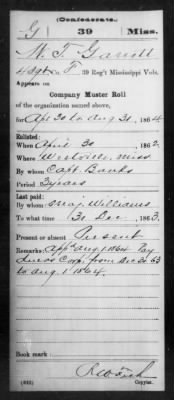 (Confederate.)
G 39 Miss.
W. T. Garrett
4 Sgt Co. F, 39 Reg't Mississippi Vols.
Appears on
Company Muster Roll
of the organization named above,
for Apl 30 to Aug 31, 1864.
Enlisted:
When April 30, 1862.
Where Westville, Miss
By whom Capt. Banks
Period 3 years
Last paid:
By whom Maj. Williams
To what time 31 Dec, 1863.
Present or absent Present
Remarks: App'd Aug 1 1864 Pay
due as Corp. from Dec 31 63
to Aug 1 1864.
Book mark:
(642)
Copyist.